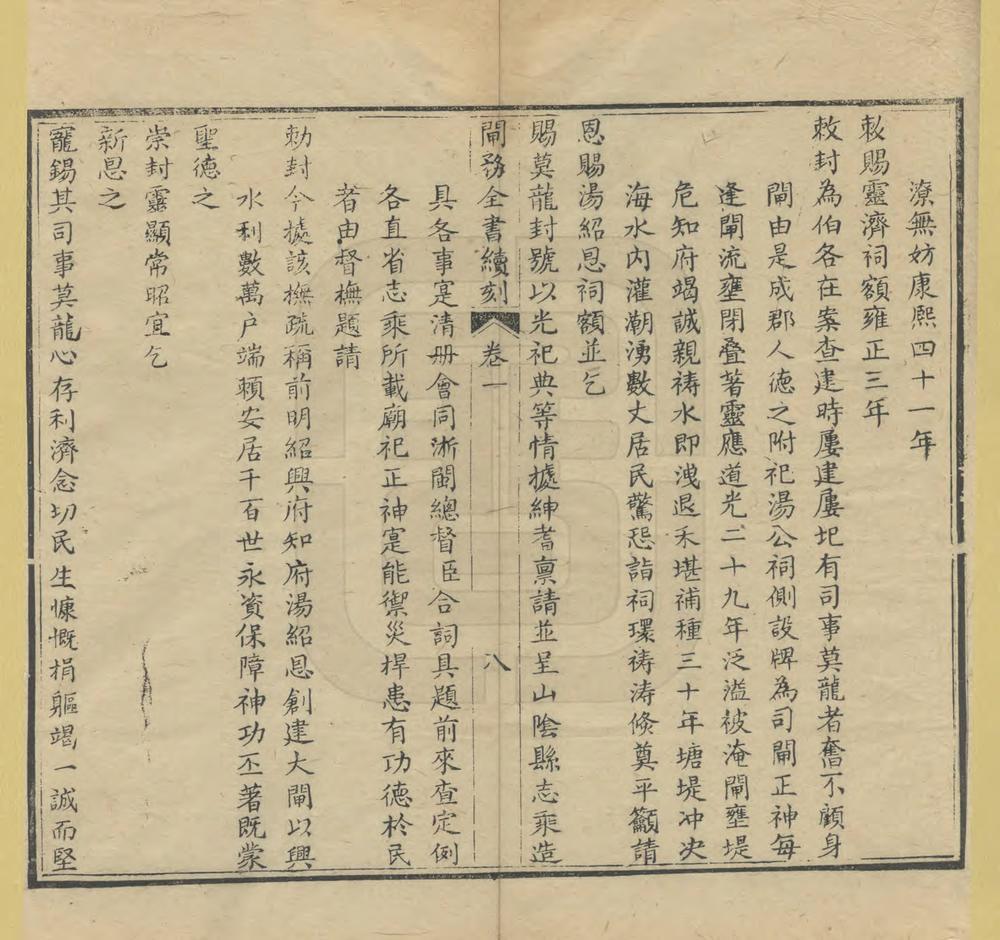 潦無妨康熙四十一年
敕賜靈濟祠額雍正三年
敕封為伯各在案查建時屢建屢圮有司事莫龍者奮不顧身
閘由是成郡人德之附祀湯公祠側設牌為司閘正神每
逢閘流壅閉疊著靈應道光二十九年泛溢被淹閘壅堤
危知府竭誠親禱水即洩退禾堪補種三十年塘堤冲決
海水內灌潮湧數丈居民驚恐詣祠環禱濤倏奠平籲請
恩賜湯紹恩祠額並乞
賜莫龍封號以光祀典等情據紳耆稟請並呈山陰縣志乘造
閘務全書續刻 卷一 八
具各事寔清册會同浙閩總督臣合詞具題前來查定例
各直省志乘所載廟祀正神寔能禦災捍患有功德於民
者由督撫題請
勅封今據該撫疏稱前明紹興府知府湯紹恩創建大閘以興
水利數萬户端賴安居千百世永資保障神功丕著既蒙
聖德之
崇封靈顯常昭宜乞
新恩之
寵錫其司事莫龍心存利濟念切民生慷慨捐軀竭一誠而堅